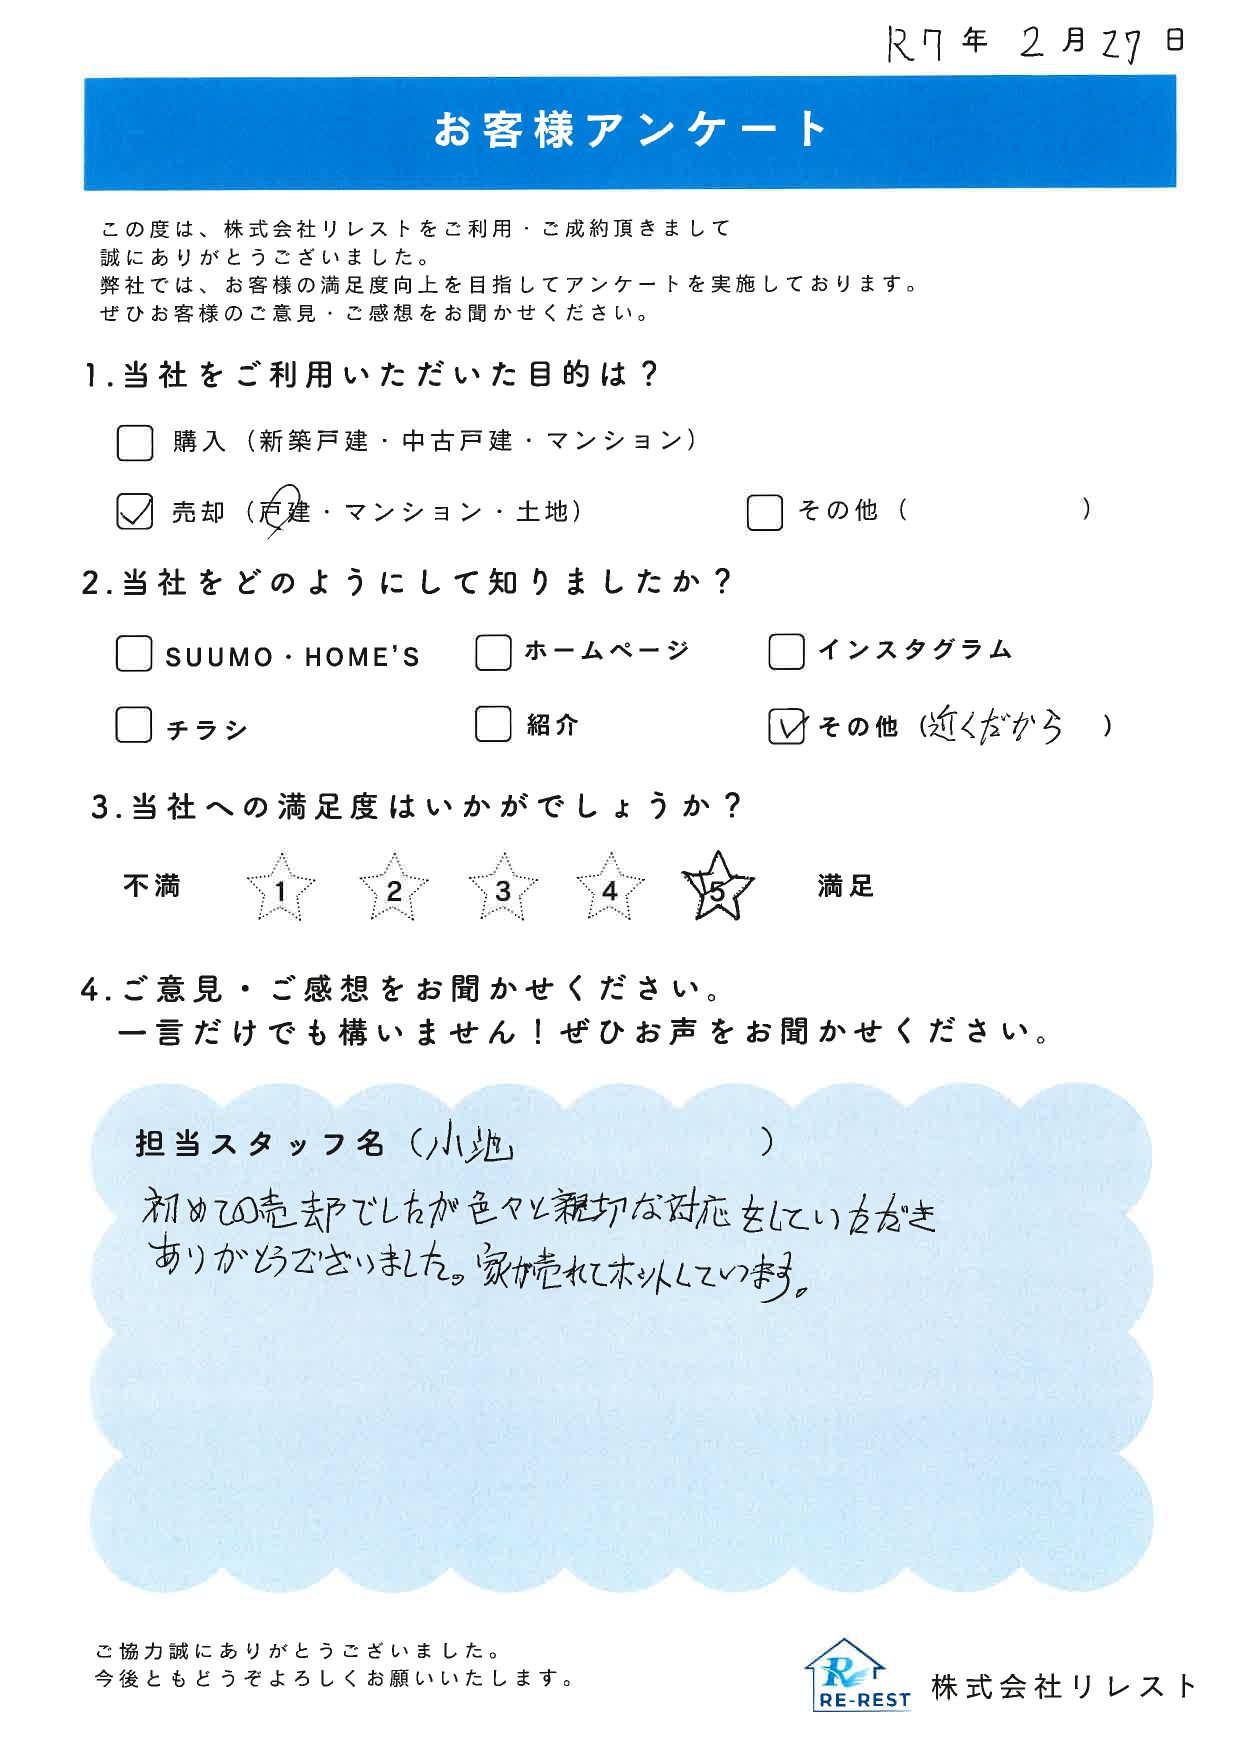 R7年 2月27日
お客様アンケート
この度は、株式会社リレストをご利用・ご成約頂きまして
誠にありがとうございました。
弊社では、お客様の満足度向上を目指してアンケートを実施しております。
ぜひお客様のご意見・ご感想をお聞かせください。
1.当社をご利用いただいた目的は？
購入（新築戸建・中古戸建・マンション）
売却（戸建・マンション・土地） その他（ ）
2.当社をどのようにして知りましたか？
SUUMO・HOME'S ホームページ インスタグラム
チラシ 紹介 その他（近くだから ）
3.当社への満足度はいかがでしょうか？
不満 1 2 3 4 5 満足
4.ご意見・ご感想をお聞かせください。
一言だけでも構いません！ぜひお声をお聞かせください。
担当スタッフ名（小池 ）
初めての売却でしたが色々と親切な対応をしていただき
ありがとうございました。家が売れてホットしています。
ご協力誠にありがとうございました。
今後ともどうぞよろしくお願いいたします。
R RE-REST 株式会社リレスト